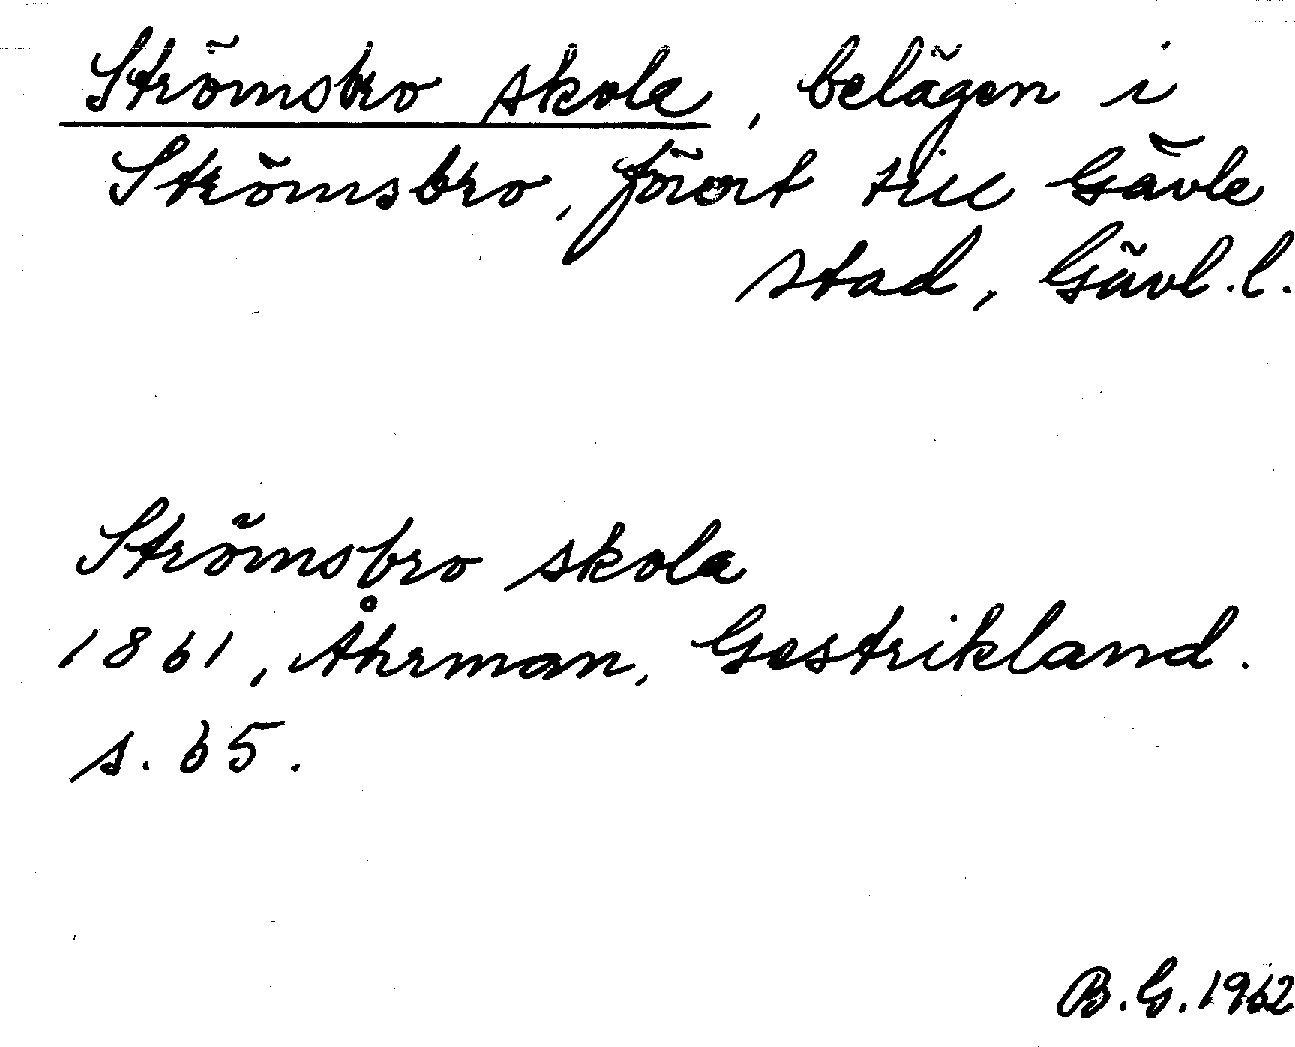 Strömsbro skola, belägen i
Strömsbro, förort till Gävle
stad, Gävl.l.
Strömsbro skola
1861, Åhrman, Gestrikland.
s. 65.
B.G. 1962